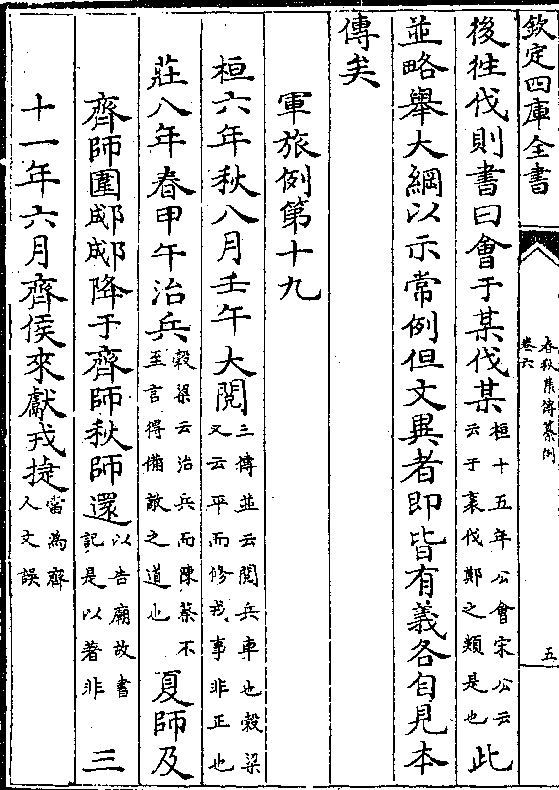 欽定四庫全書
春秋集傳纂例
卷六
五
後往伐則書曰會于某伐某桓十五年公會宋公云云于袲伐鄭之類是也此
並略舉大綱以示常例但文異者即皆有義各自見本
傳矣
軍旅例第十九
桓六年秋八月壬午大閱三傳並云閱兵車也榖梁又云平而修戎事非正也
莊八年春甲午治兵榖梁云治兵而陳蔡不至言得備敵之道也夏師及
齊師圍郕郕降于齊師秋師還以告廟故書記是以著非三
十一年六月齊侯來獻戎捷當為齊人文誤